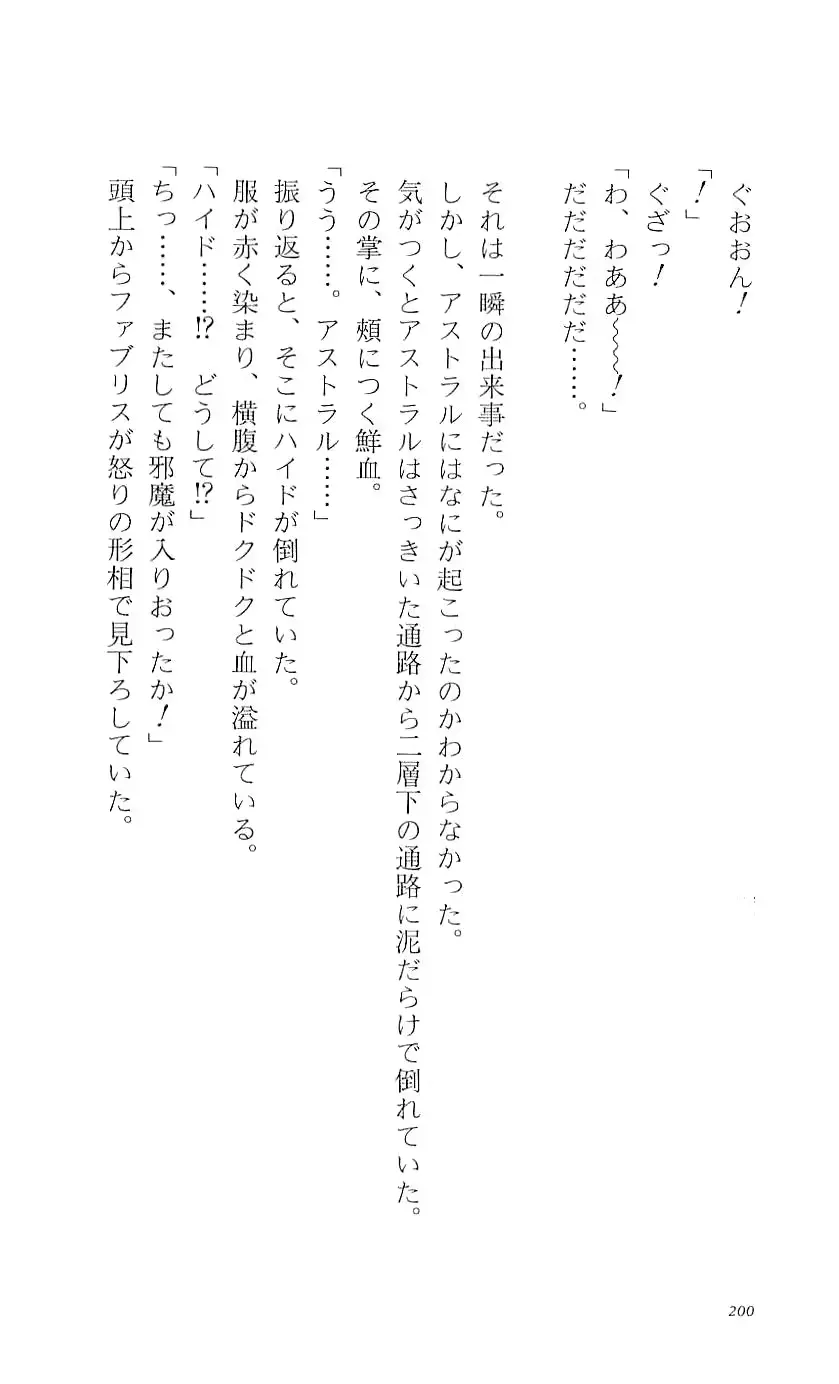 ぐおおん！
「！」
ぐざっ！
「わ、わああ～～～！」
だだだだだだ……。
それは一瞬の出来事だった。
しかし、アストラルにはなにが起こったのかわからなかった。
気がつくとアストラルはさっきいた通路から二層下の通路に泥だらけで倒れていた。
その掌に、頰につく鮮血。
「うう……。アストラル……」
振り返ると、そこにハイドが倒れていた。
服が赤く染まり、横腹からドクドクと血が溢れている。
「ハイド……!?　どうして!?」
「ちっ……、またしても邪魔が入りおったか！」
頭上からファブリスが怒りの形相で見下ろしていた。
200